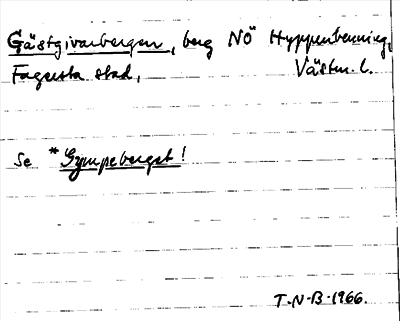 Gästgivarbergen, berg NÖ Hyppenbenning,
Fagersta stad, Västm. l.
Se *Gympebergst!
T-N-B-1966.